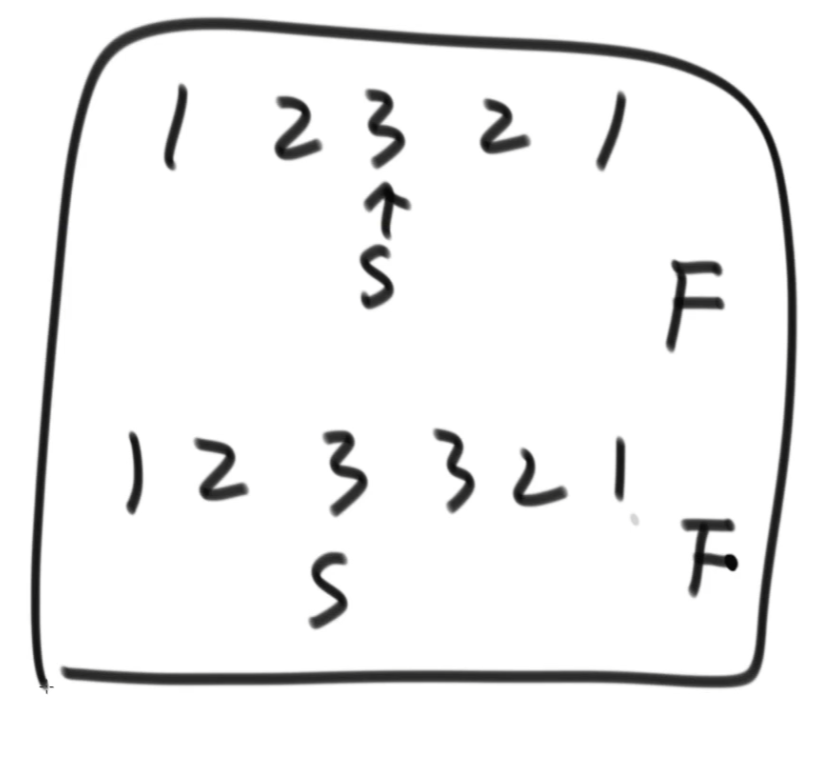 1 2 3 2 1
↑
S
F
1 2 3 3 2 1
S
F